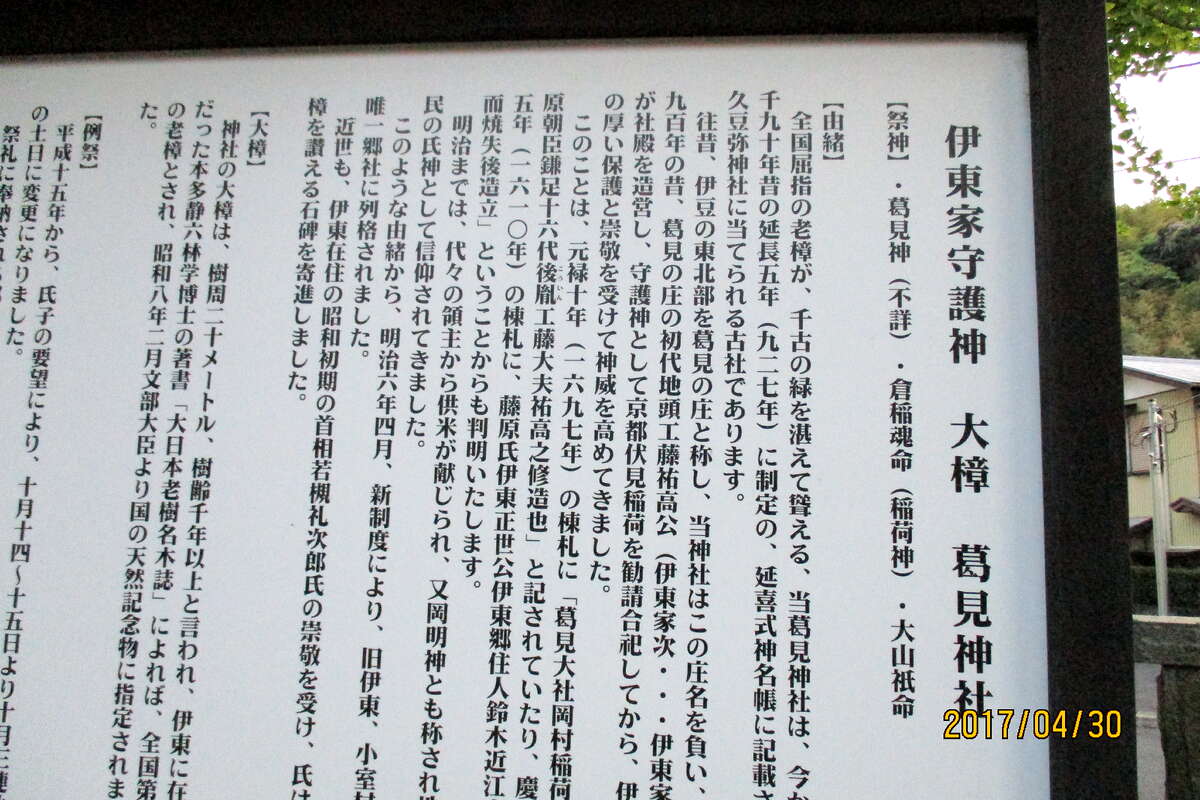 伊東家守護神 大樟 葛見神社
【祭神】・葛見神（不詳）・倉稲魂命（稲荷神）・大山祇命
【由緒】
全国屈指の老樟が、千古の緑を湛えて聳える、当葛見神社は、今か
千九十年昔の延長五年（九二七年）に制定の、延喜式神名帳に記載さ
久豆弥神社に当てられる古社であります。
往昔、伊豆の東北部を葛見の庄と称し、当神社はこの庄名を負い、
九百年の昔、葛見の庄の初代地頭工藤祐高公（伊東家次・・・伊東家
が社殿を造営し、守護神として京都伏見稲荷を勧請合祀してから、伊
の厚い保護と崇敬を受けて神威を高めてきました。
このことは、元禄十年（一六九七年）の棟札に「葛見大社岡村稲荷
原朝臣鎌足十六代後胤工藤大夫祐高之修造也」と記されていたり、慶
五年（一六一〇年）の棟札に、藤原氏伊東正世公伊東郷住人鈴木近江
而焼失後造立」ということからも判明いたします。
明治までは、代々の領主から供米が献じられ、又岡明神とも称され
民の氏神として信仰されてきました。
このような由緒から、明治六年四月、新制度により、旧伊東、小室村
唯一郷社に列格されました。
近世も、伊東在住の昭和初期の首相若槻礼次郎氏の崇敬を受け、氏は
樟を讃える石碑を寄進しました。
【大樟】
神社の大樟は、樹周二十メートル、樹齢千年以上と言われ、伊東に在
だった本多静六林学博士の著書「大日本老樹名木誌」によれば、全国第
の老樟とされ、昭和八年二月文部大臣より国の天然記念物に指定されま
た。
【例祭】
平成十五年から、氏子の要望により、十月十四～十五日より十月三連
の土日に変更になりました。
祭礼に奉納される
2017/04/30